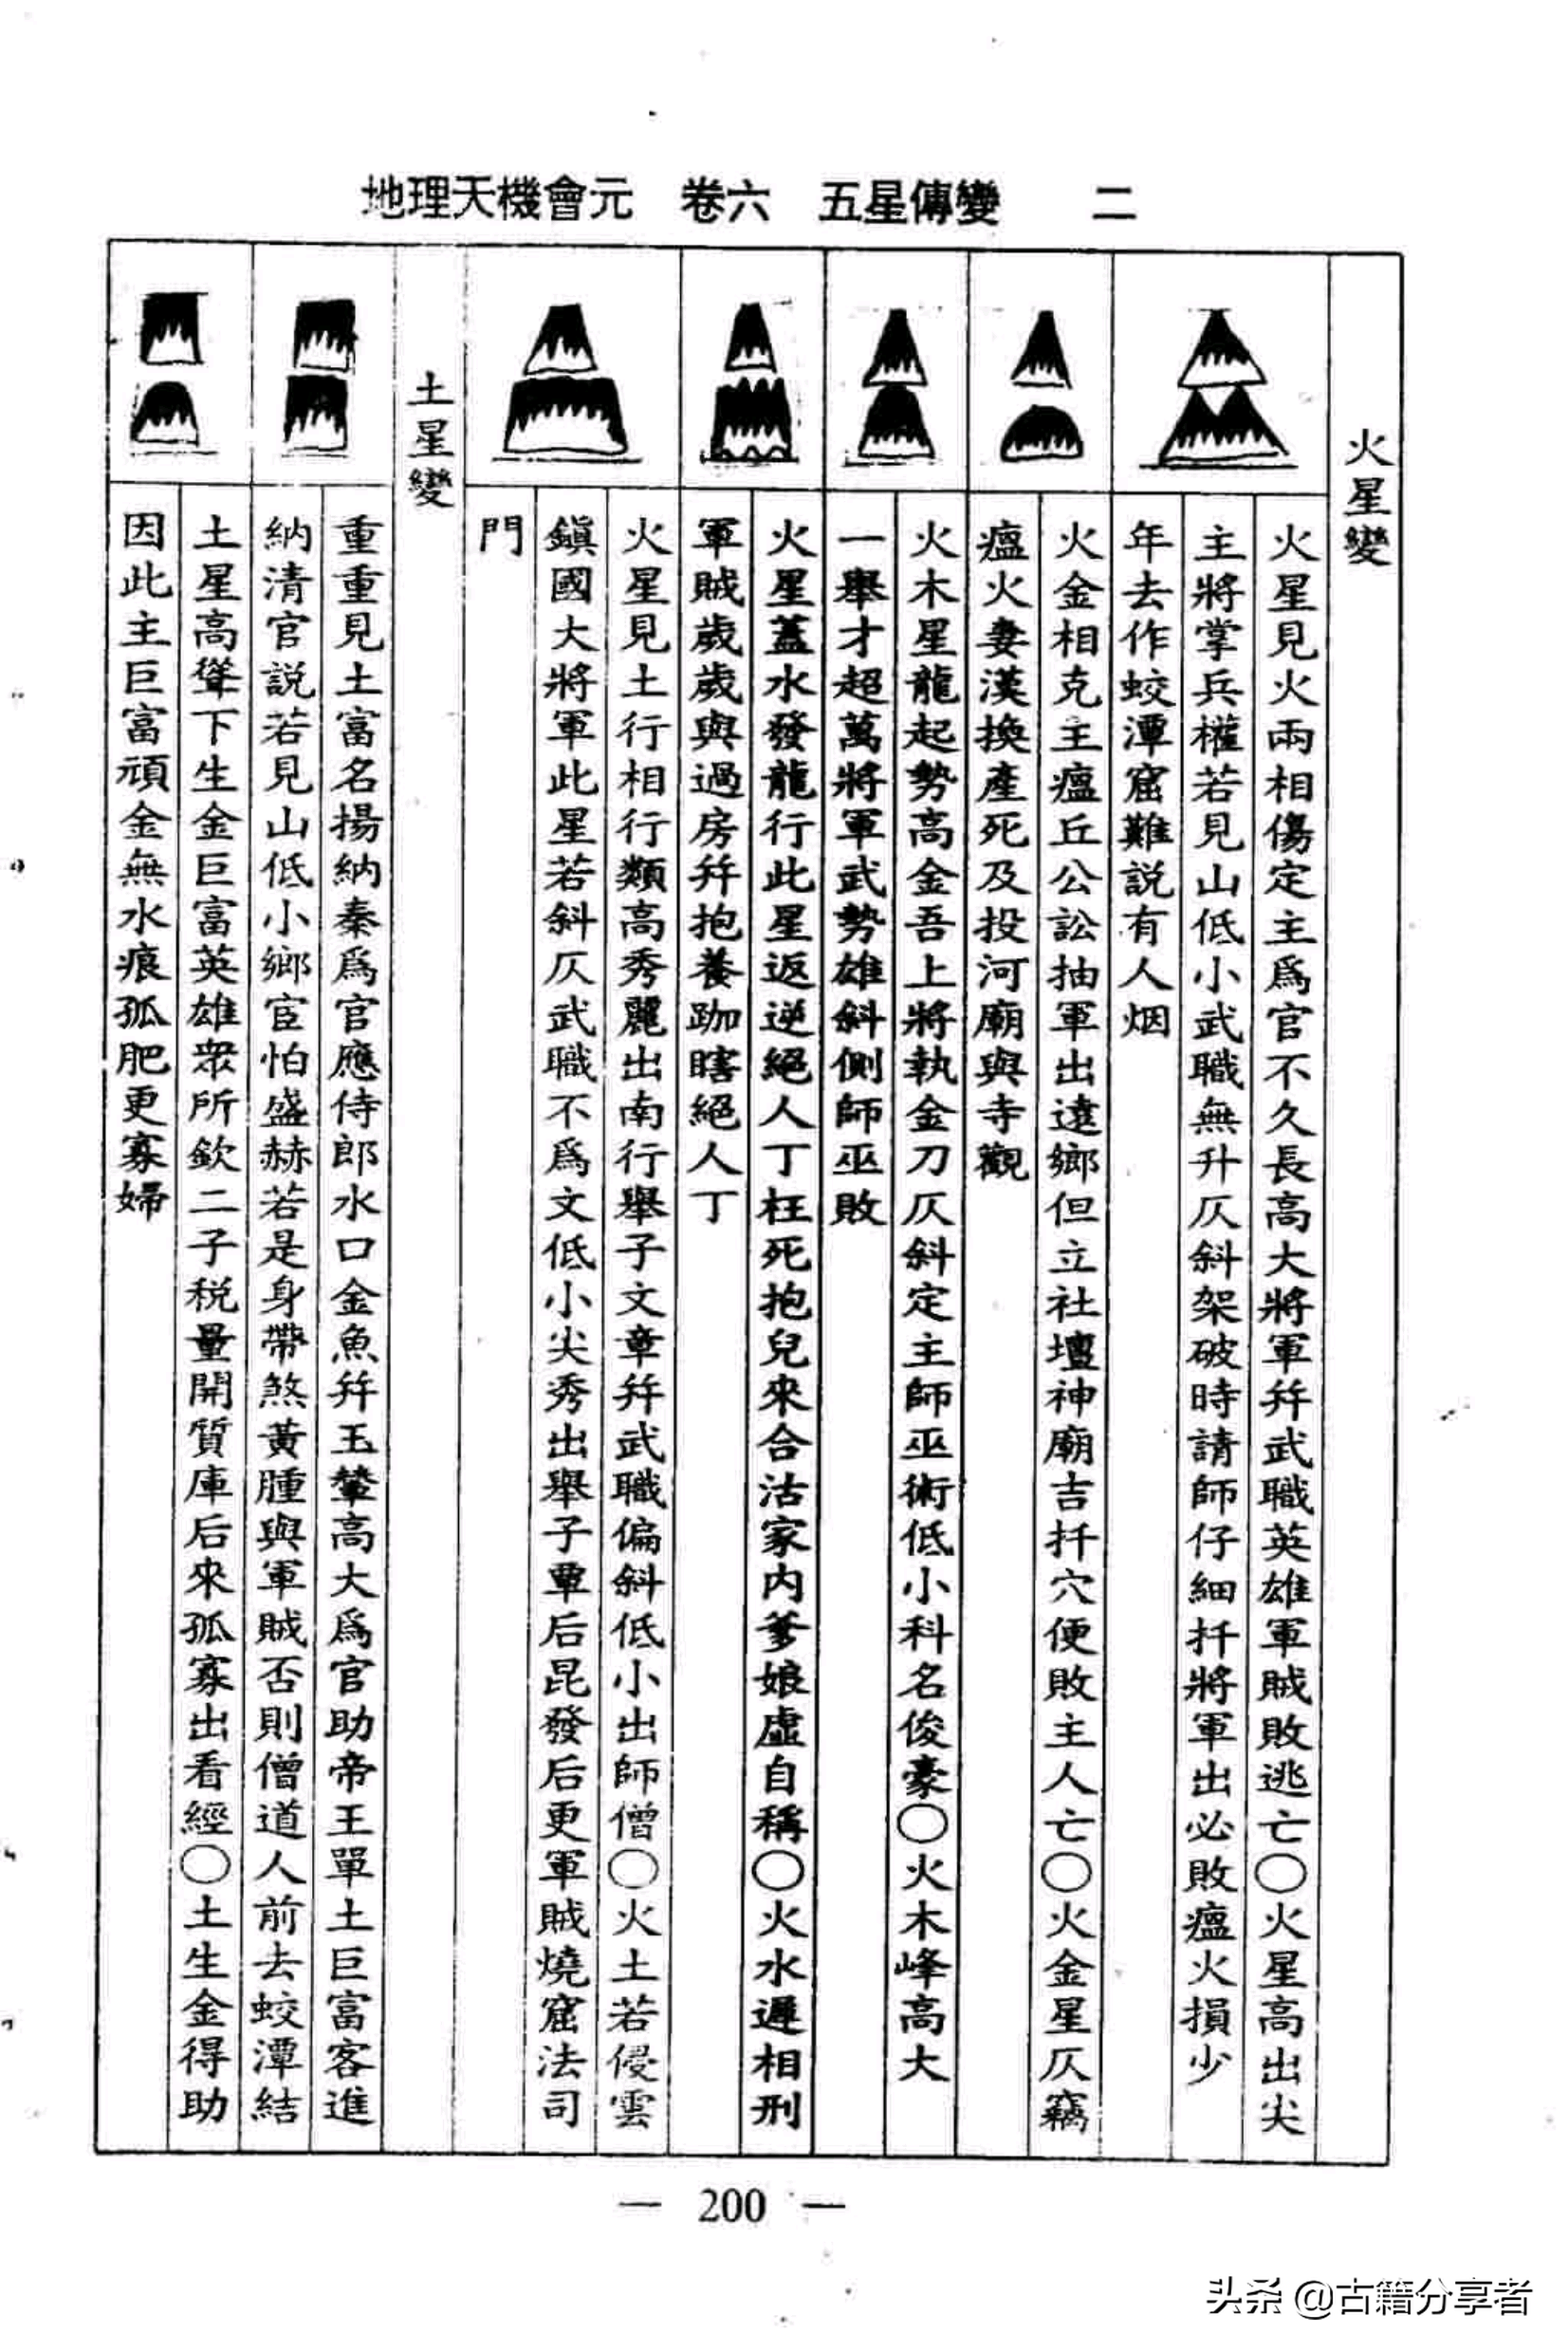 地理天機會元 卷六 五星傳變 二
火星變
火星見火兩相傷定主爲官不久長高大將軍幷武職英雄軍賊敗逃亡〇火星高出尖
主將掌兵權若見山低小武職無升仄斜架破時請師仔細扦將軍出必敗瘟火損少
年去作蛟潭窟難説有人烟
火金相克主瘟丘公訟抽軍出遠鄉但立社壇神廟吉扦穴便敗主人亡〇火金星仄竊
瘟火妻漢換產死及投河廟與寺觀
火木星龍起勢高金吾上將執金刀仄斜定主師巫術低小科名俊豪〇火木峰高大
一舉才超萬將軍武勢雄斜側師巫敗
火星蓋水發龍行此星返逆絕人丁枉死抱兒來合活家内爹娘虛自稱〇火水遲相刑
軍賊歲歲與過房幷抱養跏瞎絕人丁
火星見土行相行類高秀麗出南行舉子文章幷武職偏斜低小出師僧〇火土若侵雲
鎭國大將軍此星若斜仄武職不爲文低小尖秀出舉子覃后昆發后更軍賊燒窟法司
門
土星變
重重見土富名揚納秦爲官應侍郎水口金魚幷玉輦高大爲官助帝王單土巨富客進
納清官説若見山低小鄉宦怕盛赫若是身帶煞黃腫與軍賊否則僧道人前去蛟潭結
土星高聳下生金巨富英雄衆所欽二子税量開質庫后來孤寡出看經〇土生金得助
因此主巨富頑金無水痕孤肥更寡婦
— 200 —
头条 @古籍分享者